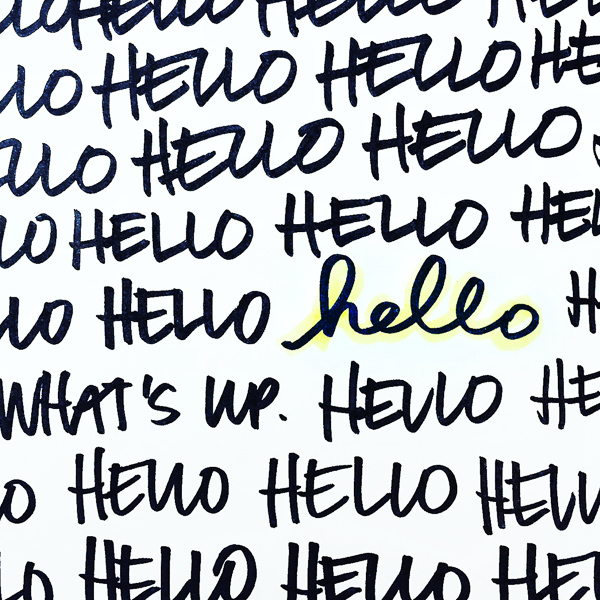 HELLO HELLO HELLO
LO HELLO HELLO HE
LLO HELLO HELLO
LO HELLO HELLO HEL
LLO HELLO hello H
WHAT'S UP. HELLO HE
O HELLO HELLO HELL
LO HELLO HELLO HE